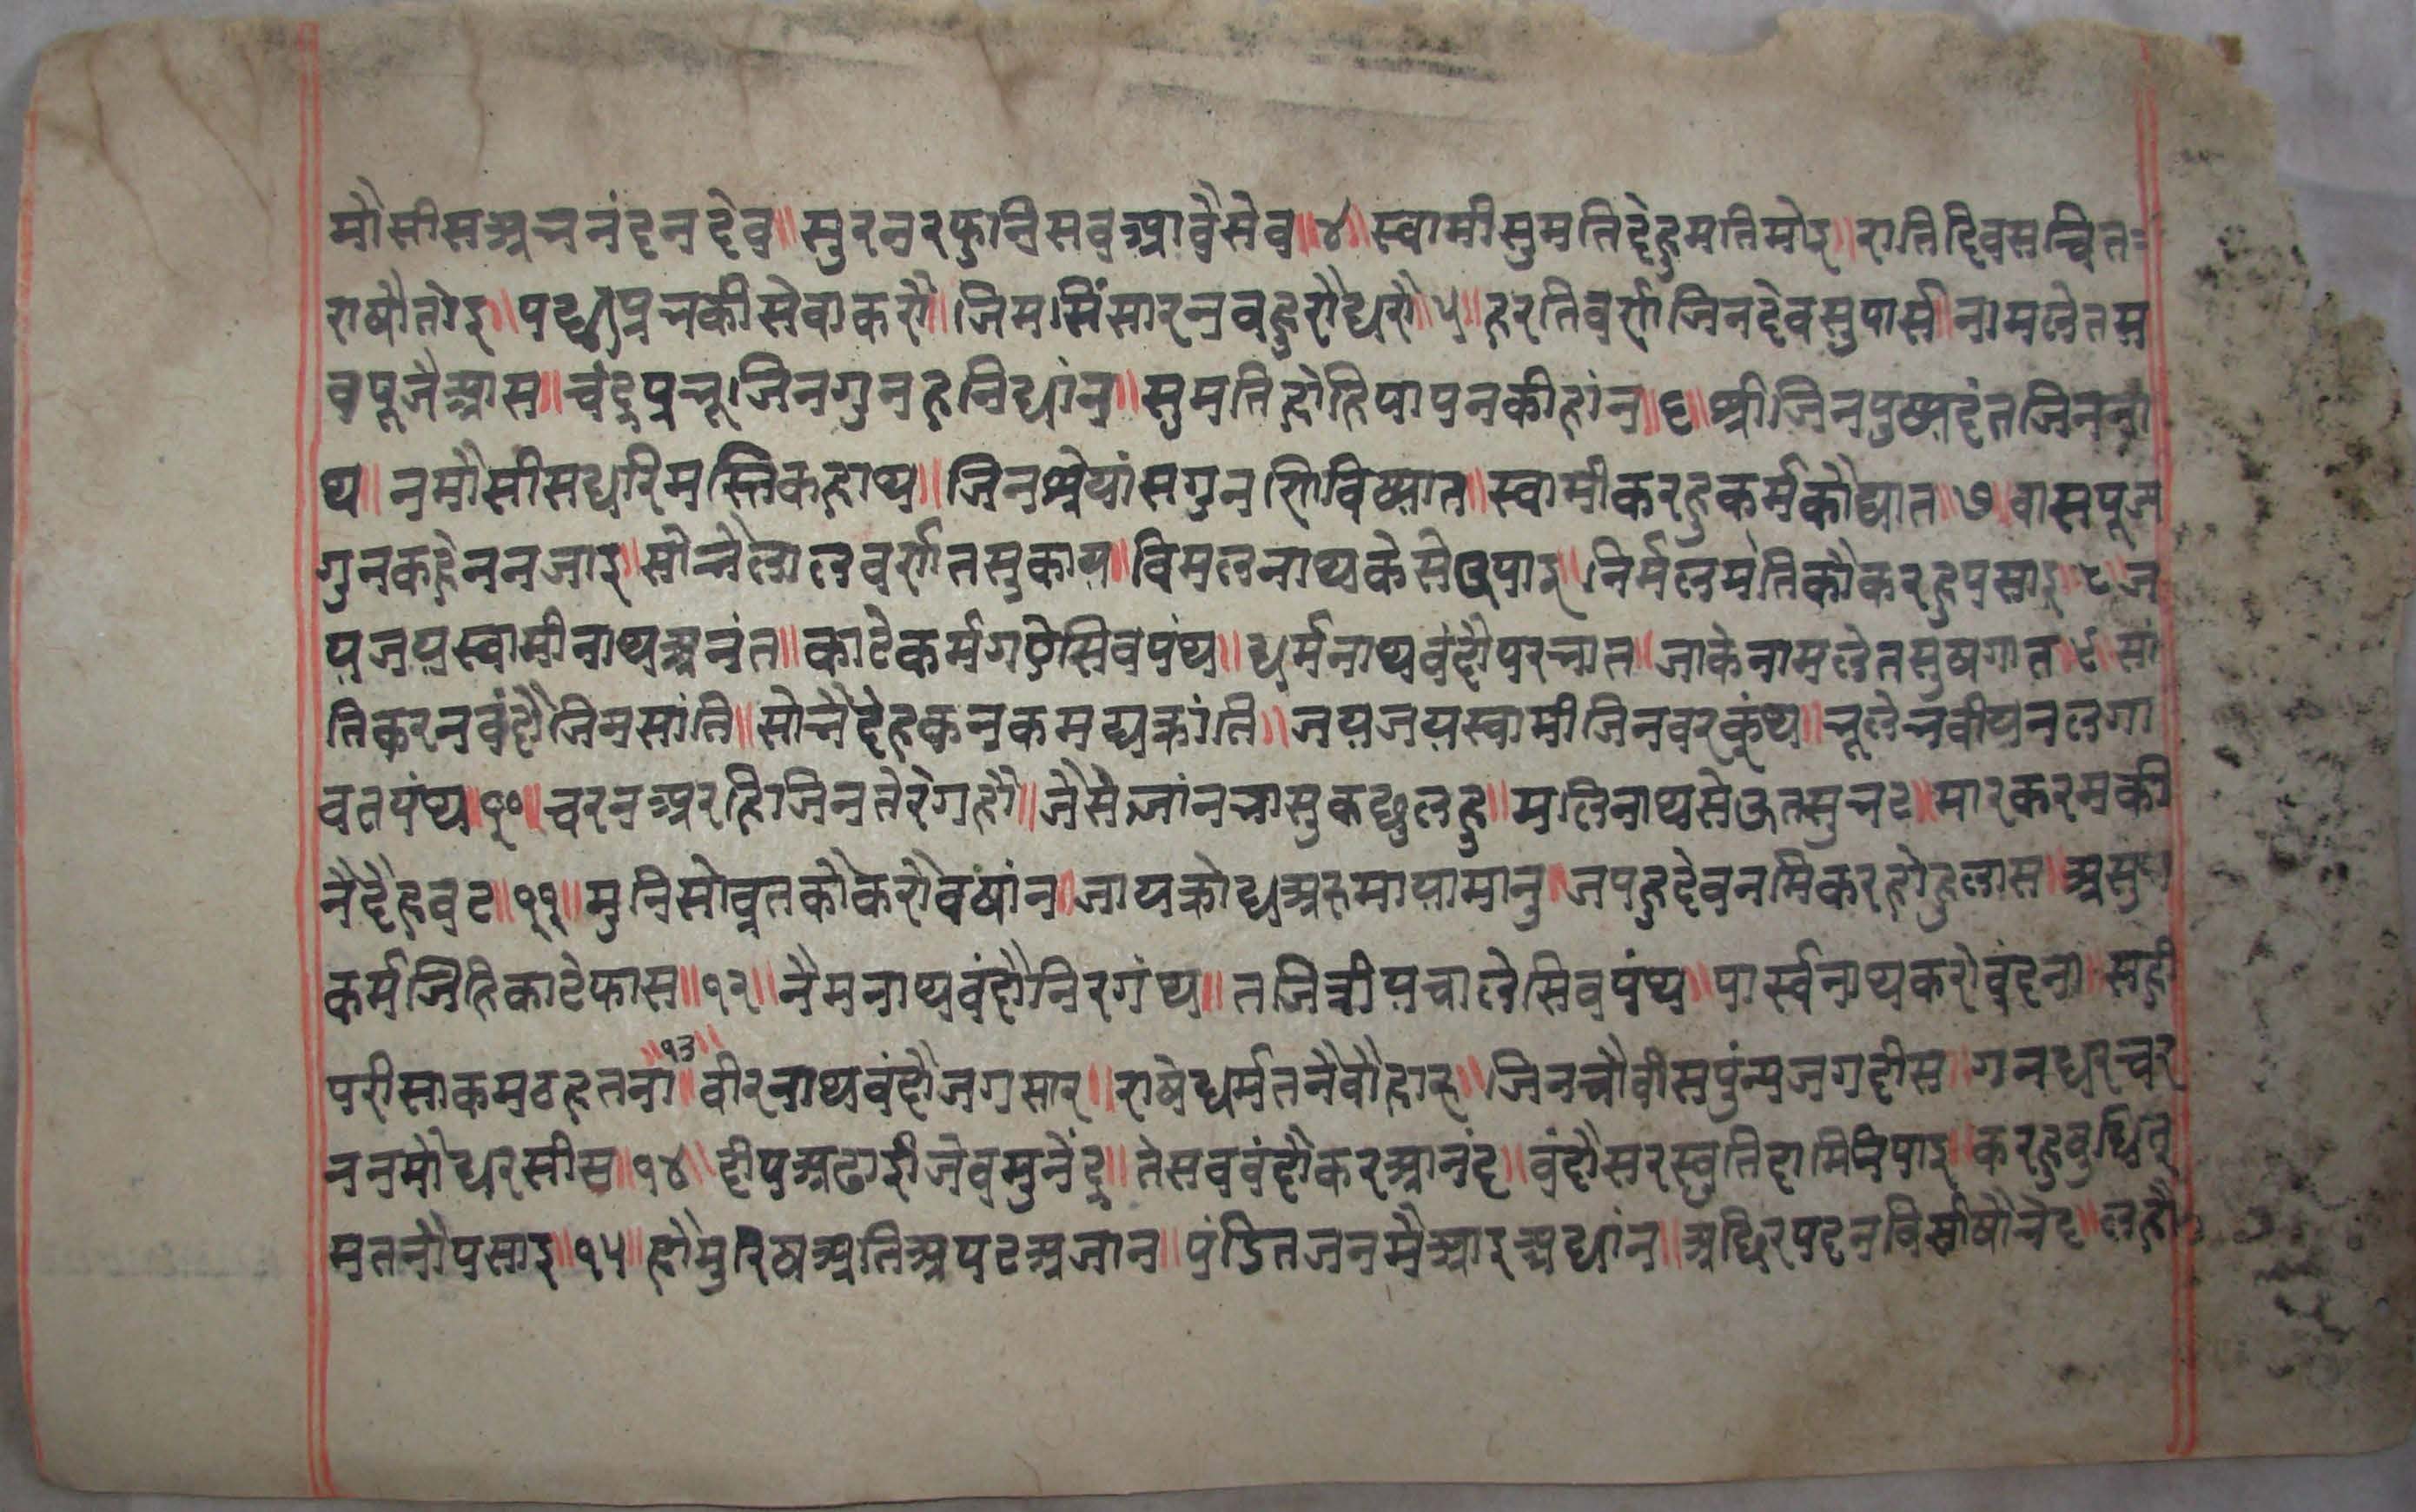 मौसीसअभनंदनदेव॥ सुरनरफुनिसवध्यावैसेव॥४॥ स्वामीसुमतिदेहुमतिमोइ॥ रातिदिवसचित
राषौतोइ॥ पद्मप्रभकीसेवाकरौ॥ जिमसिंसारनवहुरौधरौ ५॥ हरतिवर्राजिनदेवसुपार्स॥ नामलेतम
वपूजैआस॥ चंद्रप्रभूजिनगुनहनिधांन॥ सुमतिहोहिपापनकीहांन॥६॥ श्रीजिनपुष्पदंतजिननां
थ॥ नमौसीसधारिमस्तिकहाथ॥ जिनश्रेयांसगुनहिविष्यात॥ स्वामीकरहुकर्मकौघात॥७॥ वासपूज
गुनकहेननजाइ॥ सोभैलालवर्रातसुकाय॥ विमलनाथकेसेउपाइ॥ निर्मलमतिकौकरहुपसाइ॥८॥ज
यजयस्वामीनाथअनंत॥ काटेकर्मगऐसिवपंथ॥ धर्मनाथवंदौपरभात॥ जाकेनामलेतसुषगात॥९॥ सां
तिकरनवंदौजिनसांति॥ सोभैदेहकनकमयकांति॥ जयजयस्वामीजिनवरकुंथ॥ भूलेभवीयनलगा
वतपंथ॥१०॥ चरनअरहजिनतेरेगहौ॥ जैसैजांनभासुकछुलहु॥ मलिनाथसेऊतसुभट॥ मारकरमकी
नैदैहवट॥११॥ मुनिसोव्रतकौकरौवषांन॥ जायक्रोधअरुमायामानु॥ जपहुदेवनमिकरहोहुलास॥ असुभ
कर्मजिहिकाटेफास॥१२॥ नैमनाथवंदौनिरगंथ॥ तजित्रीयचालेसिवपंथ॥ पार्स्वनाथकरोवंदना॥ सही
परीसाकमठहतना॥१३॥ वीरनाथवंदौजगसार॥ राषेधर्मतनैवौहार॥ जिनचौवीसपुंन्यजगदीस॥ गनधरचर
ननमौधरसीस॥१४॥ दीपअढाईजेवमुनेंद्र॥ तेसववंदौकरआनंद॥ वंदौसरस्वतिदामिनिपाइ॥ करहुवुधित्
मतनौपसाइ॥१५॥ हौमुरिषअतिअपटअजान॥ पंडितजनमैआइअधांन॥ अछिरपदनविसीषौभेद॥ लहौ